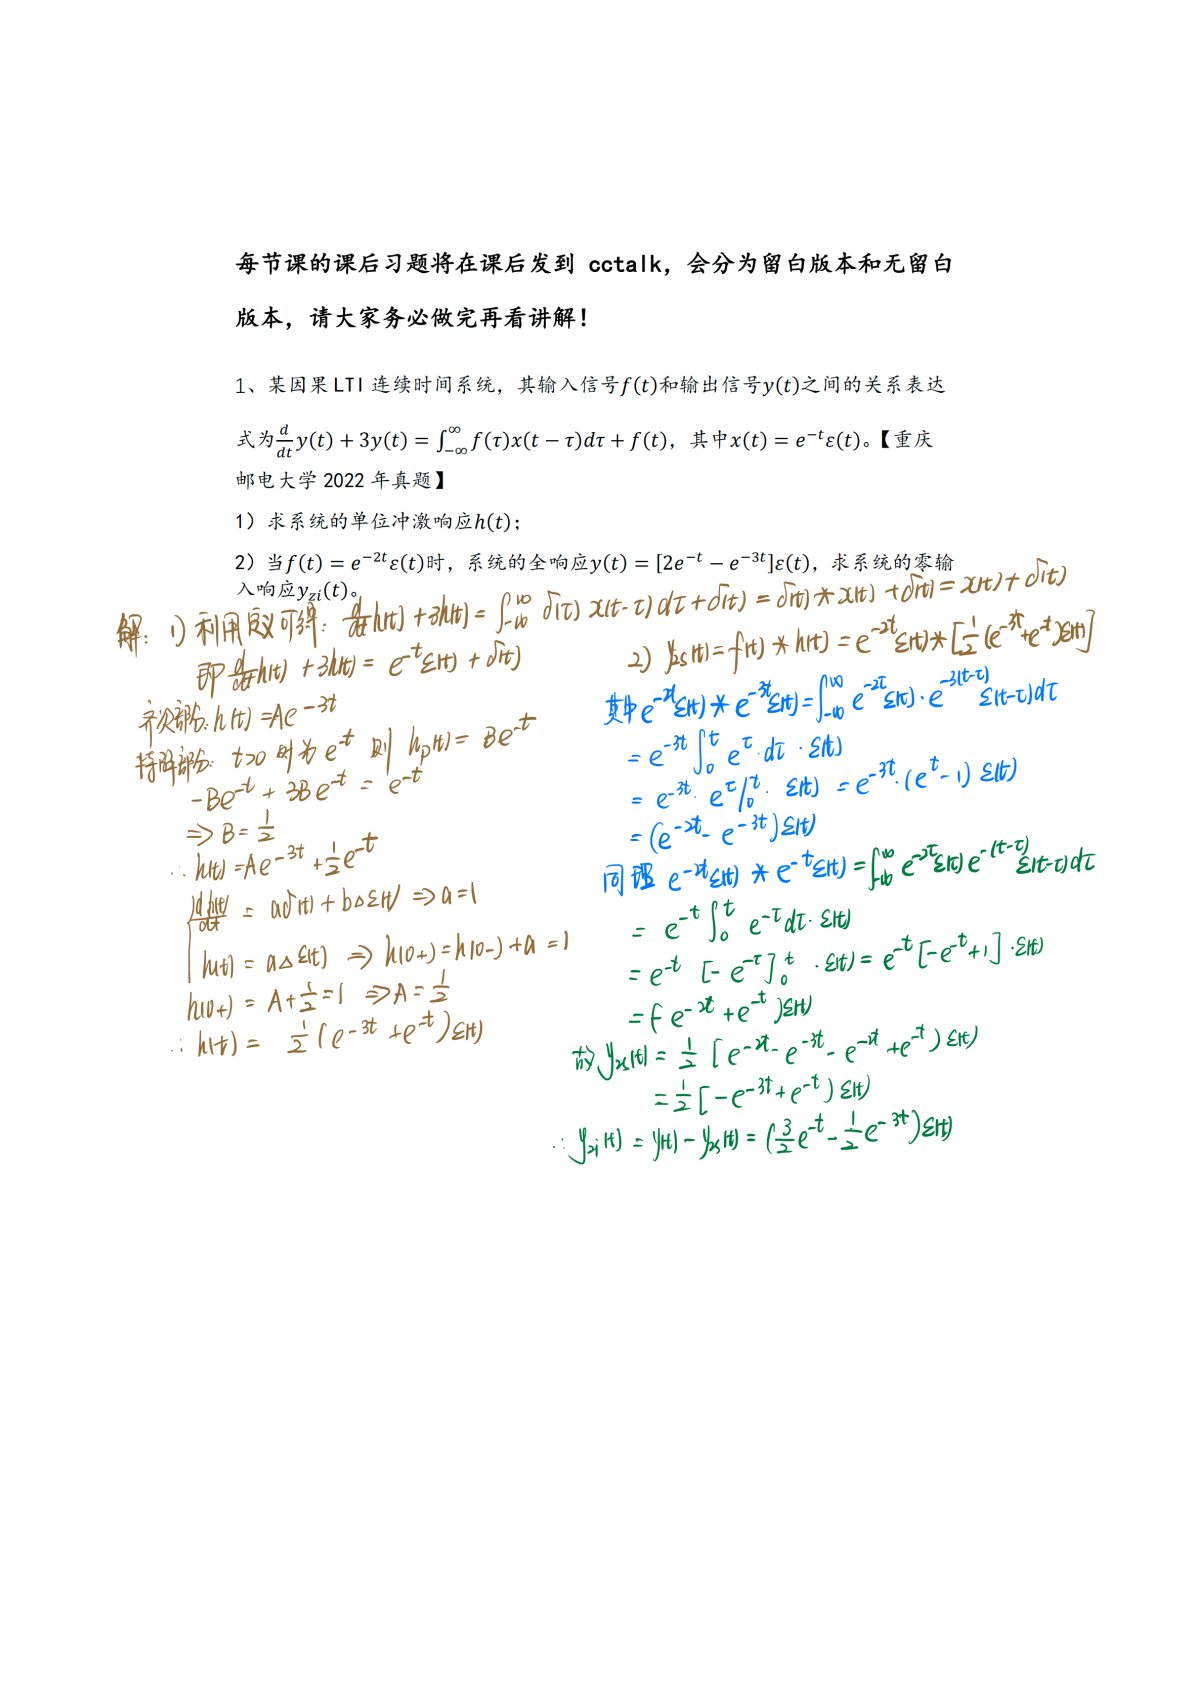 每节课的课后习题将在课后发到 cctalk，会分为留白版本和无留白
版本，请大家务必做完再看讲解！
1、某因果 LTI 连续时间系统，其输入信号f(t)和输出信号y(t)之间的关系表达
式为d/dt y(t) + 3y(t) = ∫_{-∞}^{∞} f(τ)x(t − τ)dτ + f(t)，其中x(t) = e^{-t}ε(t)。【重庆
邮电大学 2022 年真题】
1）求系统的单位冲激响应h(t)；
2）当f(t) = e^{-2t}ε(t)时，系统的全响应y(t) = [2e^{-t} − e^{-3t}]ε(t)，求系统的零输
入响应y_{zi}(t)。
解：1) 利用定义可得：d/dt h(t) + 3h(t) = ∫_{-∞}^{∞} δ(τ) x(t-τ) dτ + δ(t) = δ(t) * x(t) + δ(t) = x(t) + δ(t)
即 d/dt h(t) + 3h(t) = e^{-t}ε(t) + δ(t)
齐次部分：h(t) = Ae^{-3t}
特解部分：t>0 时为 e^{-t} 则 h_p(t) = Be^{-t}
-Be^{-t} + 3Be^{-t} = e^{-t}
⇒ B = 1/2
∴ h(t) = Ae^{-3t} + 1/2 e^{-t}
{ dh(t)/dt = aδ(t) + bΔε(t) ⇒ a = 1
h(t) = aΔε(t) ⇒ h(0+) = h(0-) + a = 1
h(0+) = A + 1/2 = 1 ⇒ A = 1/2
∴ h(t) = 1/2 (e^{-3t} + e^{-t}) ε(t)
2) y_{zs}(t) = f(t) * h(t) = e^{-2t}ε(t) * [1/2 (e^{-3t} + e^{-t})ε(t)]
其中 e^{-2t}ε(t) * e^{-3t}ε(t) = ∫_{-∞}^{∞} e^{-2τ}ε(τ) · e^{-3(t-τ)} ε(t-τ) dτ
= e^{-3t} ∫_0^t e^τ · dτ · ε(t)
= e^{-3t} · e^τ |_0^t · ε(t) = e^{-3t} · (e^t - 1) ε(t)
= (e^{-2t} - e^{-3t}) ε(t)
同理 e^{-2t}ε(t) * e^{-t}ε(t) = ∫_{-∞}^{∞} e^{-2τ}ε(τ) e^{-(t-τ)} ε(t-τ) dτ
= e^{-t} ∫_0^t e^{-τ} dτ · ε(t)
= e^{-t} [-e^{-τ}]_0^t · ε(t) = e^{-t} [-e^{-t} + 1] · ε(t)
= (-e^{-2t} + e^{-t}) ε(t)
故 y_{zs}(t) = 1/2 [e^{-2t} - e^{-3t} - e^{-2t} + e^{-t}) ε(t)
= 1/2 [-e^{-3t} + e^{-t}) ε(t)
∴ y_{zi}(t) = y(t) - y_{zs}(t) = (3/2 e^{-t} - 1/2 e^{-3t}) ε(t)